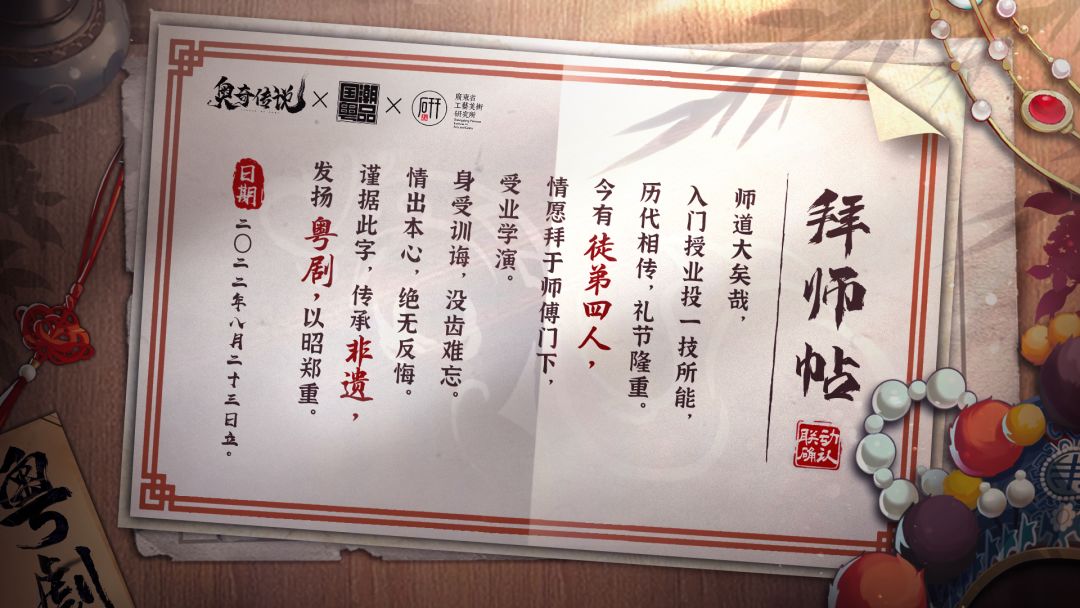 奥奇传说×国潮粤品×研
廣東省
工藝美術
研究所
拜师帖
联动
确认
师道大矣哉，
入门授业投一技所能，
历代相传，礼节隆重。
今有徒第四人，
情愿拜于师傅门下，
受业学演。
身受训诲，没齿难忘。
情出本心，绝无反悔。
谨据此字，传承非遗，
发扬粤剧，以昭郑重。
日期
二〇二二年八月二十三日立。
粤剧